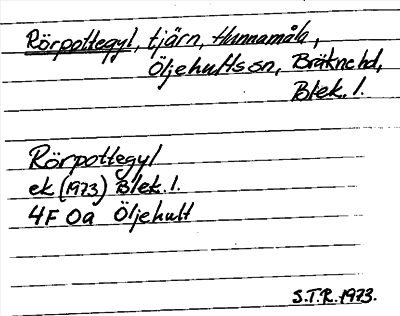 Rörpottegyl, tjärn, Hunnamåla,
Öljehults sn, Bräkne hd,
Blek. l.
Rörpottegyl
ek (1973) Blek. l.
4F 0a Öljehult
S.T.R. 1973.